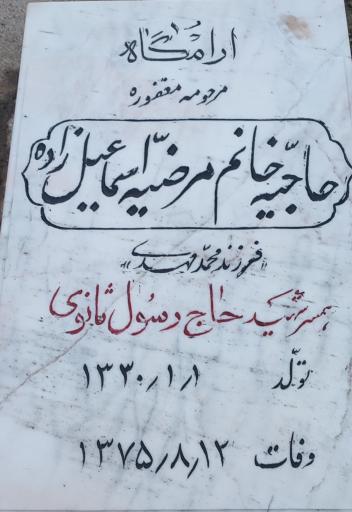 آرامگاه
مرحومه مغفوره
حاجیّه خانم مرضیّه اسماعیل زاده
«فرزند محمّد مهدی»
همسر شهید حاج رسول ثانوی
تولّد ۱۳۳۰/۱/۱
وفات ۱۳۷۵/۸/۱۲